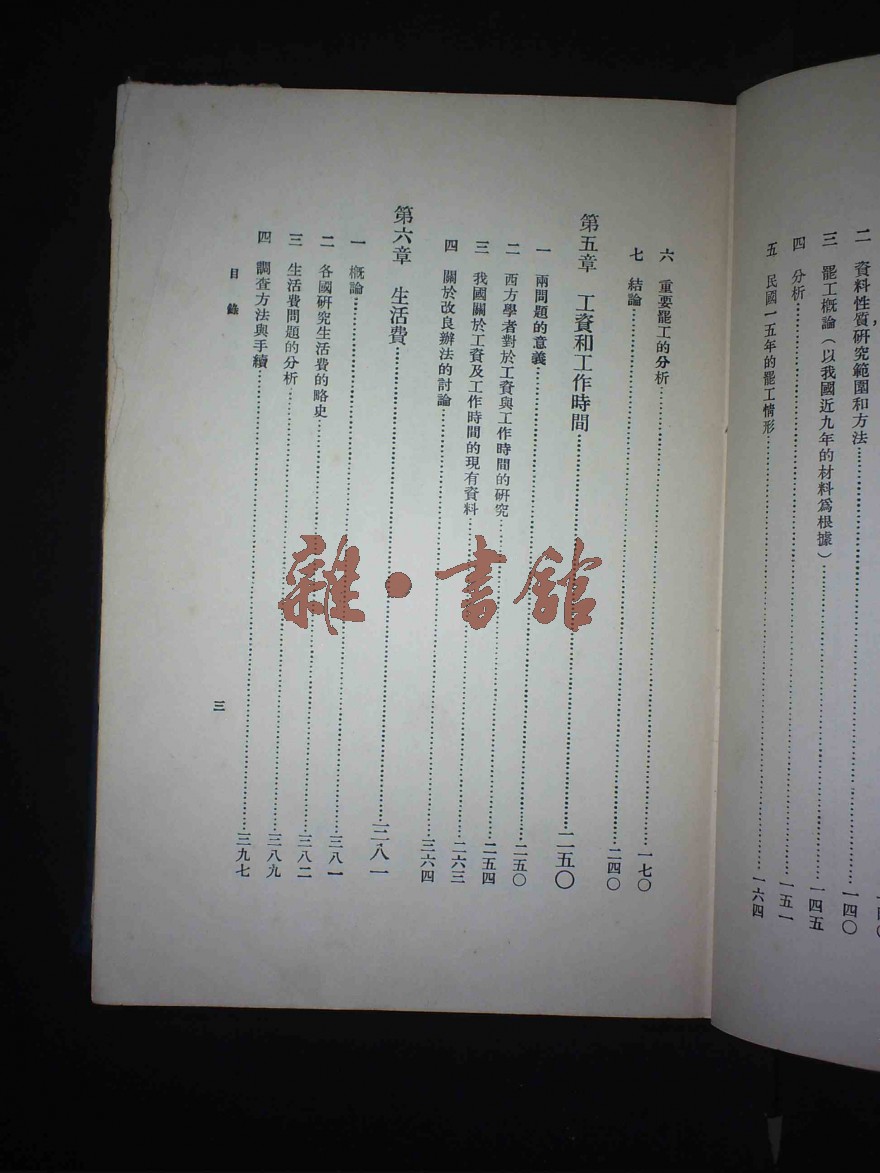 二 資料性質研究範圍和方法……一四〇
三 罷工概論（以我國近九年的材料爲根據）……一四五
四 分析……一五一
五 民國一五年的罷工情形……一六四
六 重要罷工的分析……一七〇
七 結論……二四〇
第五章 工資和工作時間……二五〇
一 兩問題的意義……二五〇
二 西方學者對於工資與工作時間的研究……二五四
三 我國關於工資及工作時間的現有資料……二六三
四 關於改良辦法的討論……三六四
第六章 生活費……三八一
一 概論……三八一
二 各國研究生活費的略史……三八二
三 生活費問題的分析……三八九
四 調查方法與手續……三九七
目錄
三
雜·書館